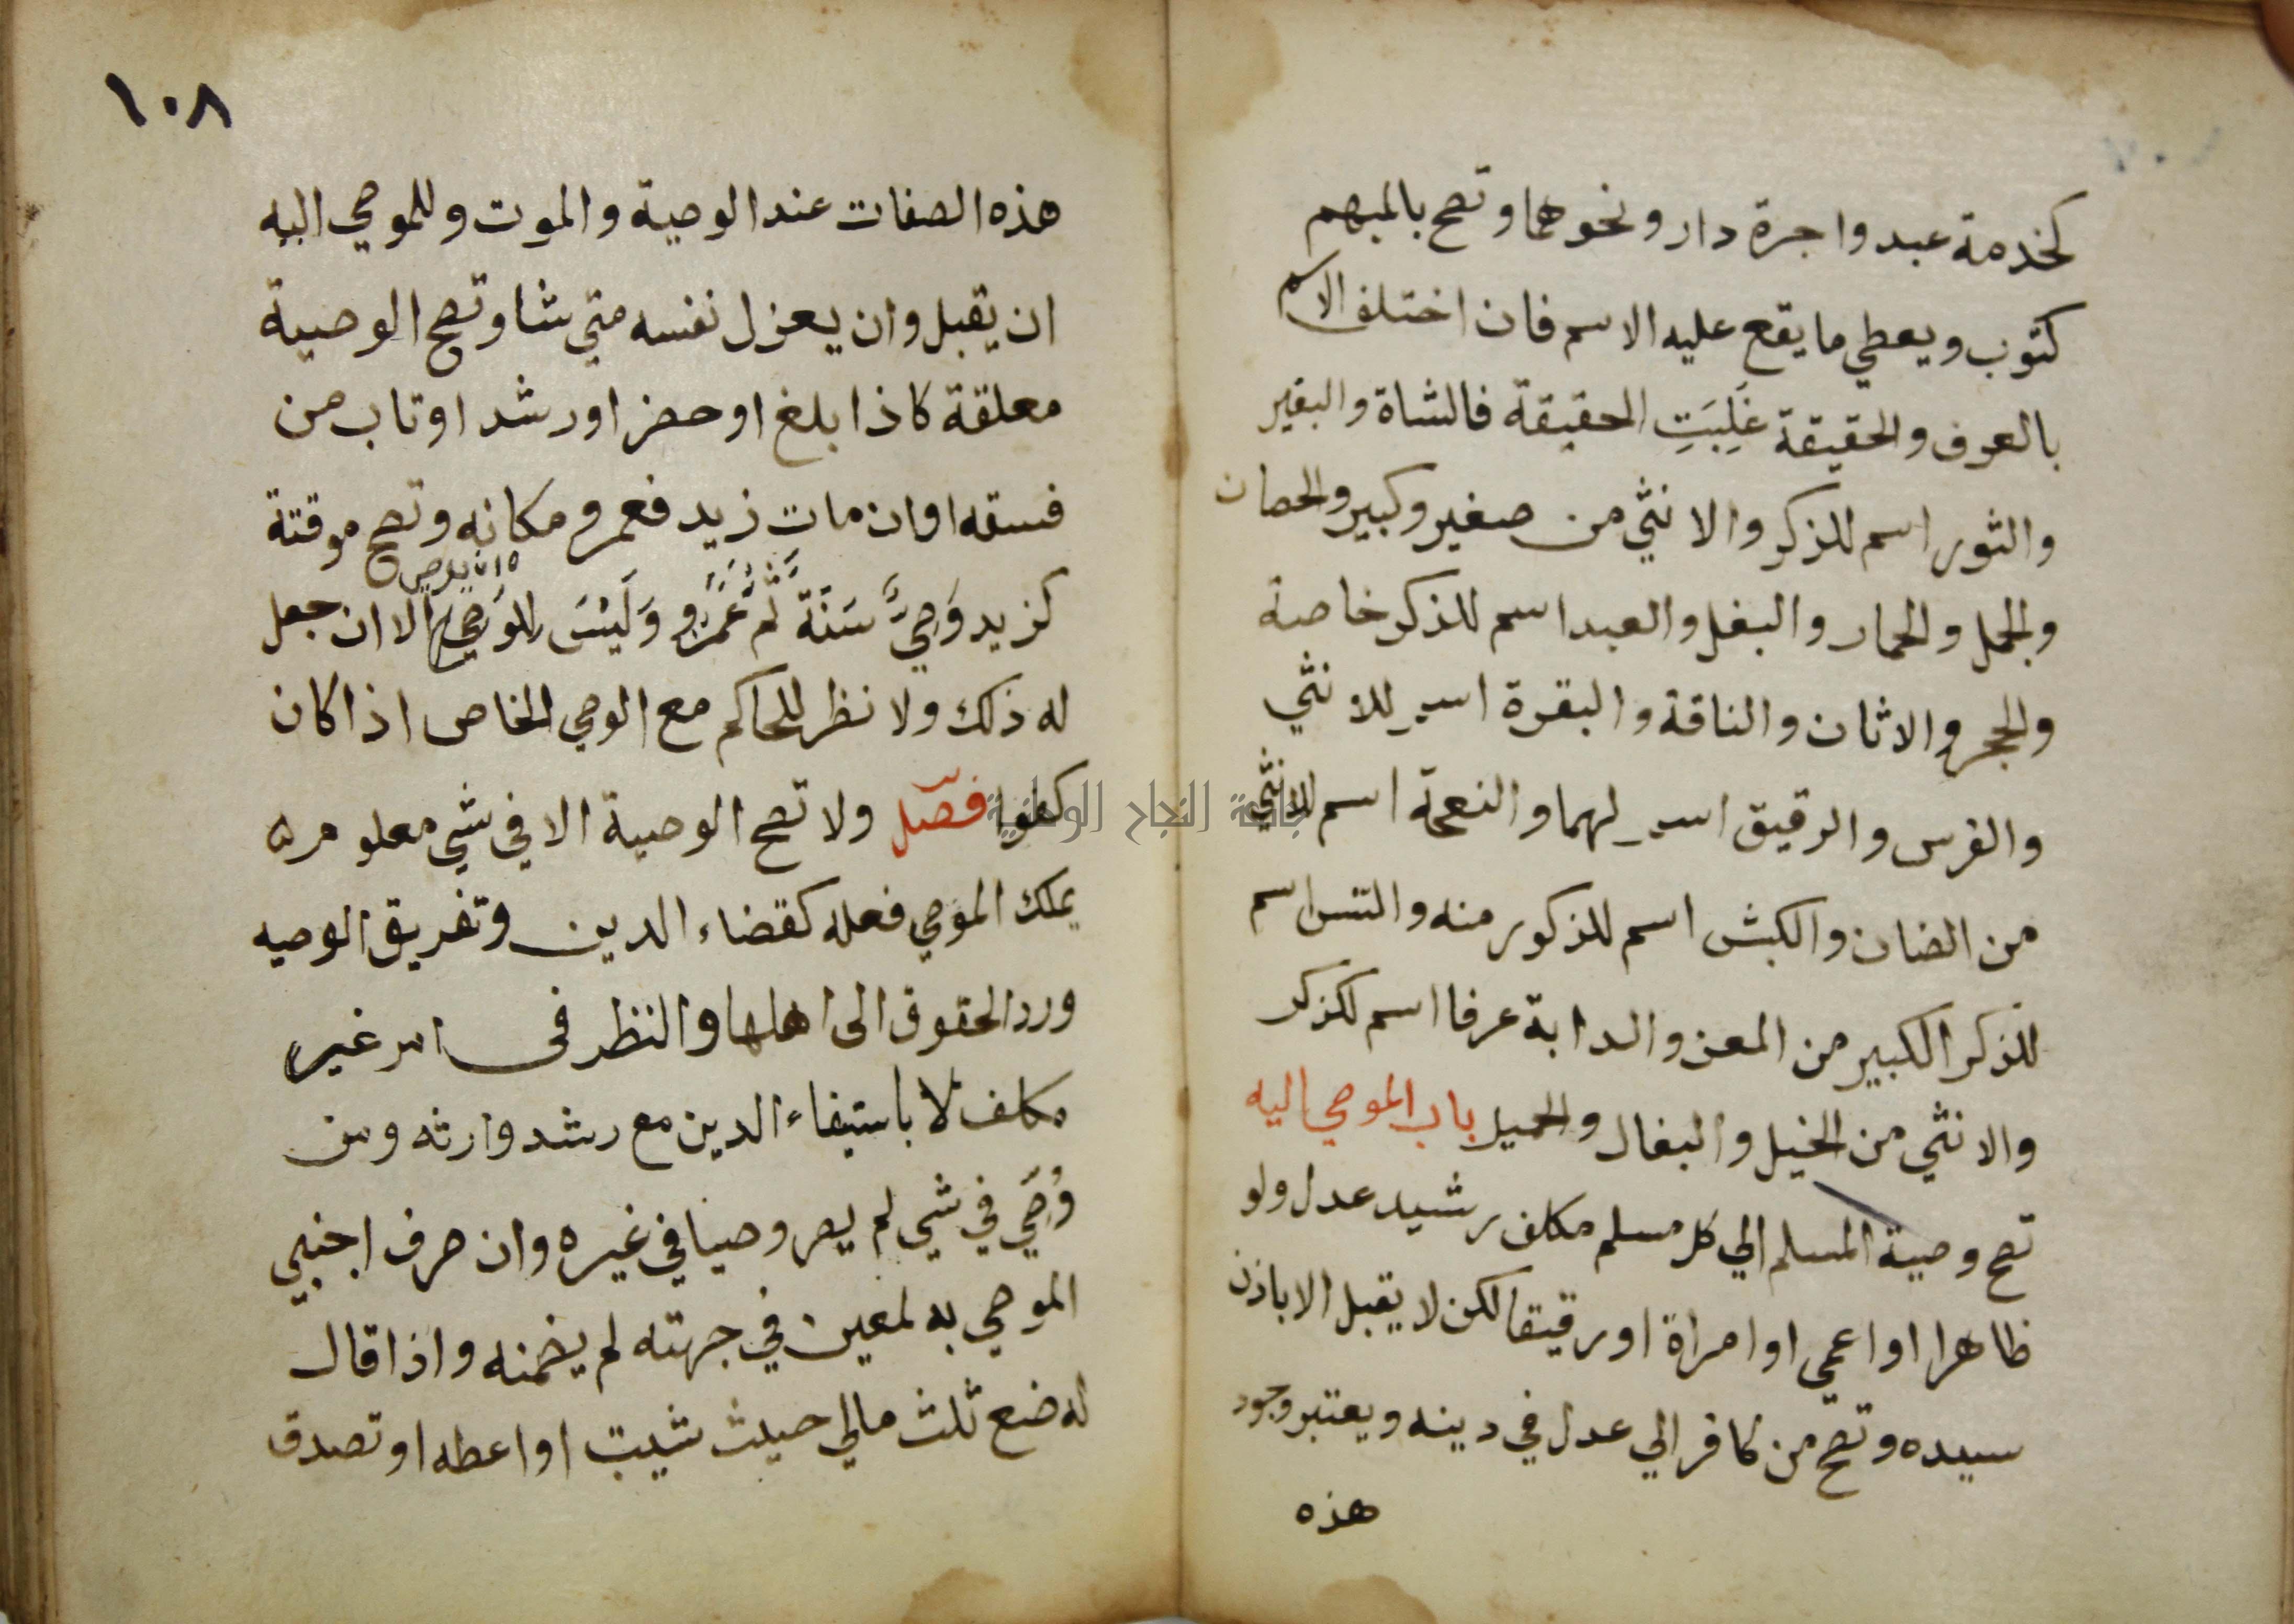 كخدمة عبد واجرة دار ونحوهما وتصح بالمبهم
كثوب ويعطي ما يقع عليه الاسم فان اختلف الاسم
بالعرف والحقيقة غَلِبَتِ الحقيقة فالشاة والبقير
والثور اسم للذكر والانثي من صغير وكبير والحصان
والجمل والحمار والبغل والعبد اسم للذكر خاصة
والحجر والاثان والناقة والبقرة اسم للانثي
والفرس والرقيق اسم لهما والنعجة اسم للانثي
من الضان والكبش اسم للذكور منه والتيس اسم
للذكر الكبير من المعز والدابة عرفا اسم لكذكر
والانثي من الخيل والبغال والحمير باب الموصي اليه
تصح وصية المسلم الي كل مسلم مكلف رشيد عدل ولو
ظاهرا او اعمي او امراة او رقيقا لكن لا يقبل الا باذن
سيده وتصح من كافر الي عدل في دينه ويعتبر وجود
هذه
١٠٨
هذه الصفات عند الوصية والموت وللموصي اليه
ان يقبل وان يعزل نفسه متي شا وتصح الوصية
معلقة كاذا بلغ او حضر او رشد او تاب من
فسقه او ان مات زيد فعمرو مكانه وتصح موقتة
كزيد وَصِيٌّ سَنَةً ثُمَّ عَمْرٌو وَلَيْسَ للوَصِيِّ الا ان جعل
ان يوصي
له ذلك ولا نظر للحاكم مع الوصي الخاص اذا كان
كفوا فصل ولا تصح الوصية الا في شي معلوم
يملك الموصي فعله كقضاء الدين وتفريق الوصيه
ورد الحقوق الى اهلها والنظر فى امر غير
مكلف لا باستيفاء الدين مع رشد وارثه ومن
وُصِّيَ في شي لم يصر وصيا في غيره وان صرف اجنبي
الموصي به لمعين في جهته لم يضمنه واذا قال
له ضع ثلث مالي حيث شيت او اعطه او تصدق
جامعة النجاح الوطنية